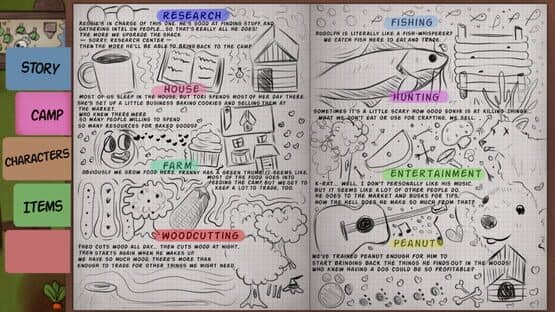 STORY
CAMP
CHARACTERS
ITEMS
RESEARCH
REGGIE'S IN CHARGE OF THIS ONE. HE'S GOOD AT FINDING STUFF AND
GATHERING INTEL ON PEOPLE... SO THAT'S REALLY ALL HE DOES!
THE MORE WE UPGRADE THE SHACK
-- SORRY, RESEARCH CENTER --
THEN THE MORE HE'LL BE ABLE TO BRING BACK TO THE CAMP.
HOUSE
MOST OF US SLEEP IN THE HOUSE, BUT TORI SPENDS MOST OF HER DAY THERE.
SHE'S SET UP A LITTLE BUSINESS BAKING COOKIES AND SELLING THEM AT
THE MARKET.
WHO KNEW THERE WERE
SO MANY PEOPLE WILLING TO SPEND
SO MANY RESOURCES FOR BAKED GOODS?
FARM
OBVIOUSLY WE GROW FOOD HERE. FRANNY HAS A GREEN THUMB IT SEEMS LIKE.
MOST OF THE FOOD GOES INTO
FEEDING THE CAMP BUT WE GOT TO
KEEP A LOT TO TRADE, TOO.
WOODCUTTING
THEO CUTS WOOD ALL DAY... THEN CUTS WOOD AT NIGHT.
THEN STARTS AGAIN WHEN HE WAKES UP.
WE HAVE SO MUCH WOOD, THERE'S MORE THAN
ENOUGH TO TRADE FOR OTHER THINGS WE MIGHT NEED.
FISHING
RUDOLFR IS LITERALLY LIKE A FISH-WHISPERER?
WE CATCH FISH HERE TO EAT AND TRADE.
HUNTING
SOMETIMES IT'S A LITTLE SCARY HOW GOOD SONIA IS AT KILLING THINGS.
WHAT WE DON'T EAT OR USE FOR CRAFTING, WE SELL.
ENTERTAINMENT
K-RAT... WELL, I DON'T PERSONALLY LIKE HIS MUSIC,
BUT IT SEEMS LIKE A LOT OF OTHER PEOPLE DO.
HE GOES TO THE MARKET AND BUSKS FOR TIPS.
HOW THE HELL DOES HE MAKE SO MUCH FROM THAT?
PEANUT
WE'VE TRAINED PEANUT ENOUGH FOR HIM TO
START BRINGING BACK THE THINGS HE FINDS OUT IN THE WOODS!
WHO KNEW HAVING A DOG COULD BE SO PROFITABLE?